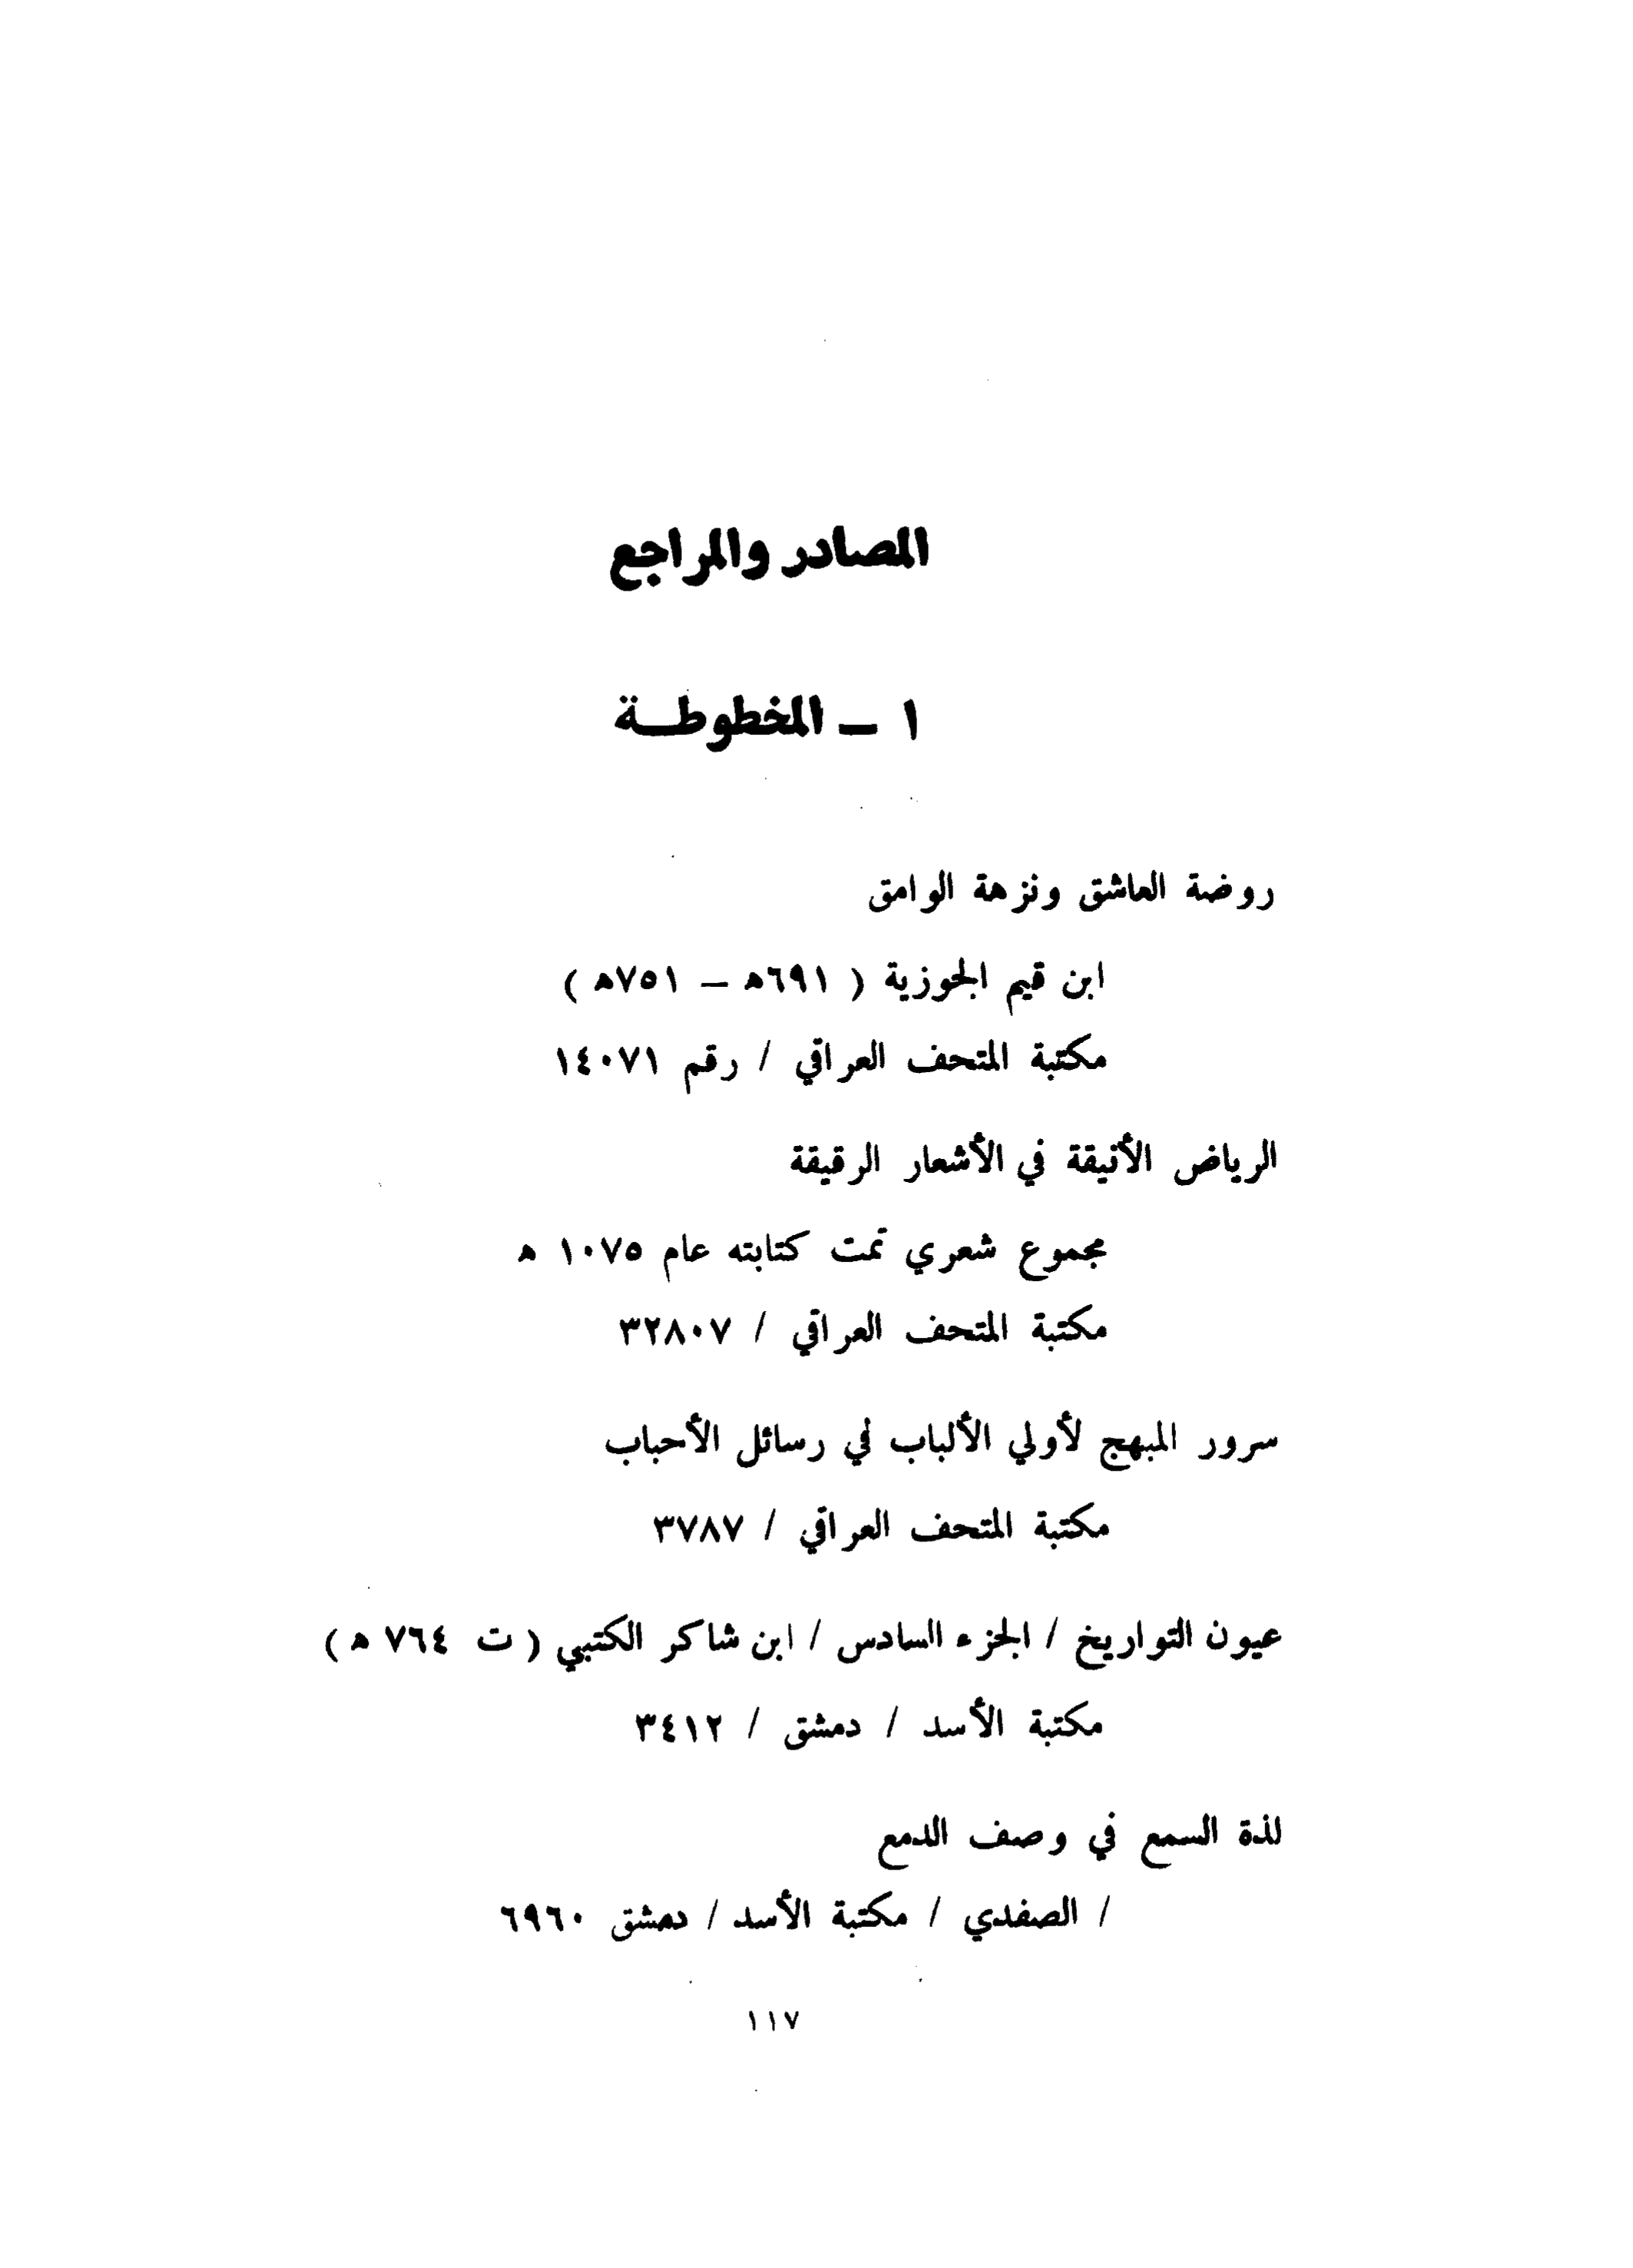 المصادر والمراجع
١ – المخطوطة
روضة العاشق ونزهة الوامق
ابن قيم الجوزية ( ٦٩١ه – ٧٥١ه )
مكتبة المتحف العراقي / رقم ١٤٠٧١
الرياض الأنيقة في الأشعار الرقيقة
مجموع شعري تمت كتابته عام ١٠٧٥ ه
مكتبة المتحف العراقي / ٣٢٨٠٧
سرور المبهج لأولي الألباب في رسائل الأحباب
مكتبة المتحف العراقي / ٣٧٨٧
عيون التواريخ / الجزء السادس / ابن شاكر الكتبي ( ت ٧٦٤ ه )
مكتبة الأسد / دمشق / ٣٤١٢
لذة السمع في وصف الدمع
/ الصفدي / مكتبة الأسد / دمشق ٦٩٦٠
١١٧